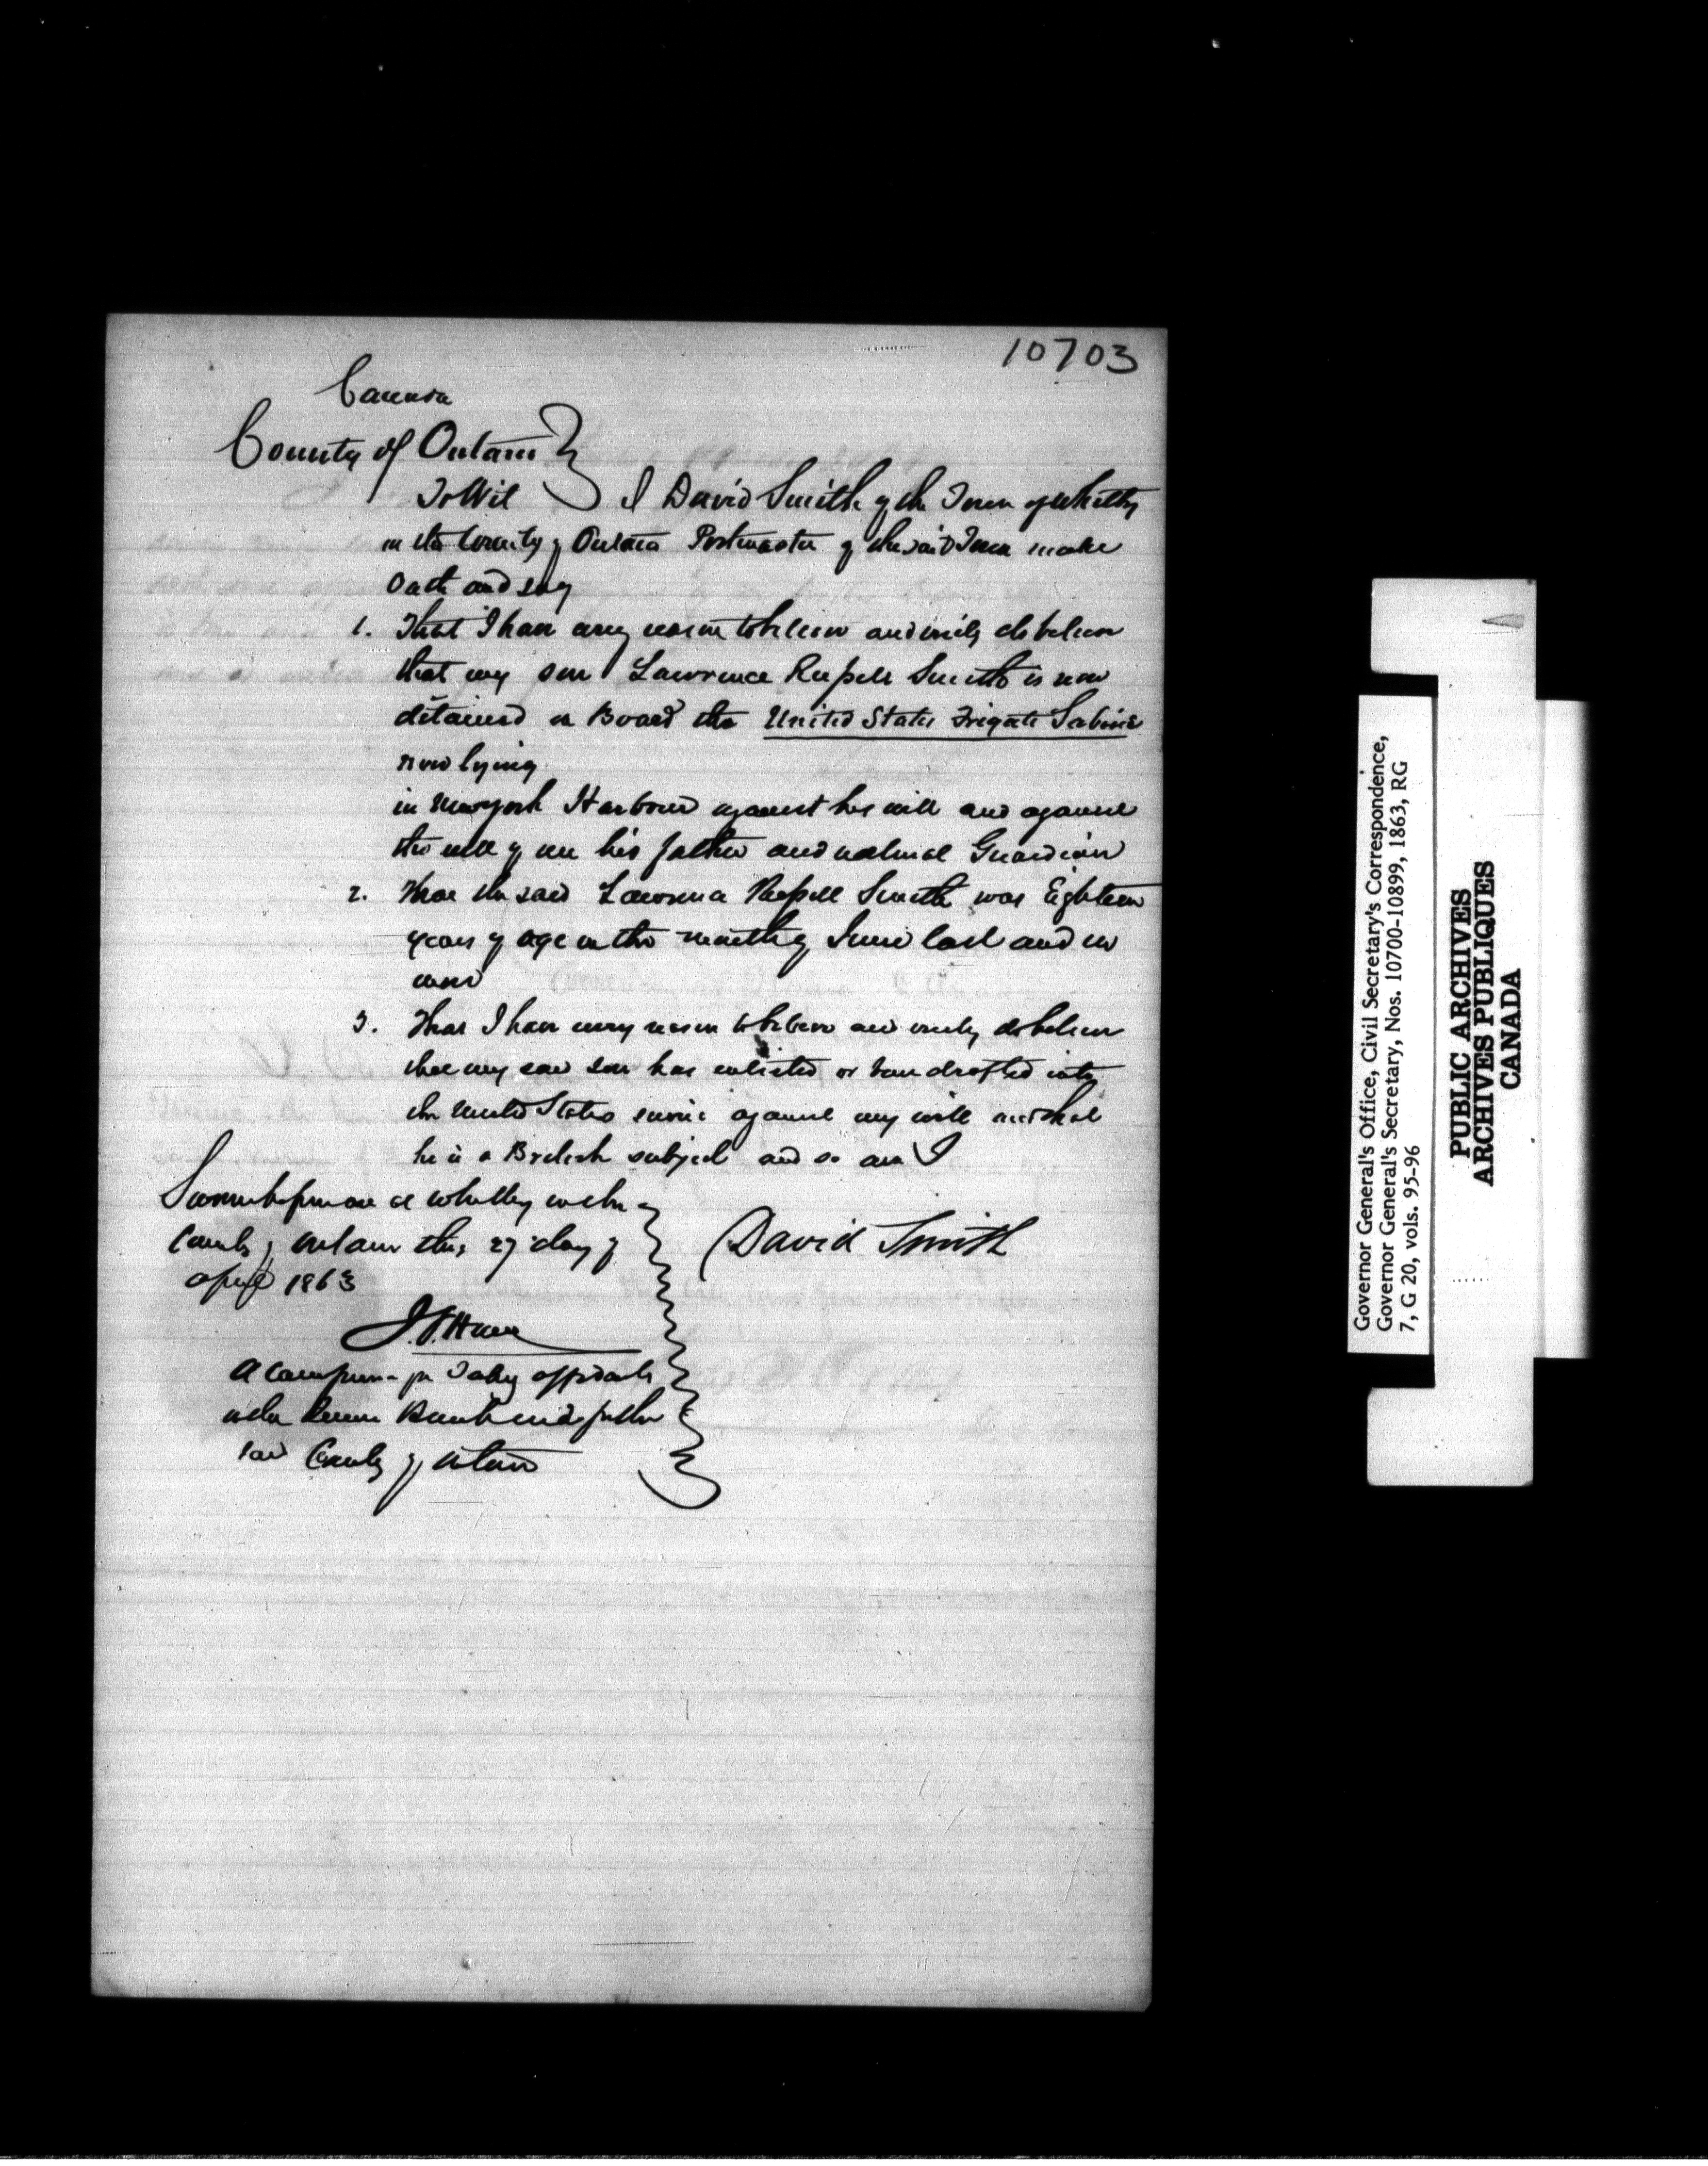 10703
Canada
County of Ontario
To Wit I David Smith of the Town of Whitby
in the County of Ontario Postmaster of the said Town make
Oath and say
1. That I have every reason to believe and verily do believe
that my son Lawrence Russell Smith is now
detained on Board the United States Frigate Sabine
now lying
in New york Harbour against his will and against
the will of me his father and natural Guardian
2. That the said Lawrence Russell Smith was Eighteen
years of age in the month of June last and no
more
3. That I have every reason to believe and verily do believe
that my said son has enlisted or been drafted into
the United States service against my will and that
he is a British subject and so am I
Sworn before me at Whitby in the
County of Ontario this 27 day of
April 1863
David Smith
J. S. Ham
A Commissioner for Taking affidavits
in the Queens Bench and for the
said County of Ontario
Governor General's Office, Civil Secretary's Correspondence,
Governor General's Secretary, Nos. 10700-10899, 1863, RG
7, G 20, vols. 95-96
PUBLIC ARCHIVES
ARCHIVES PUBLIQUES
CANADA